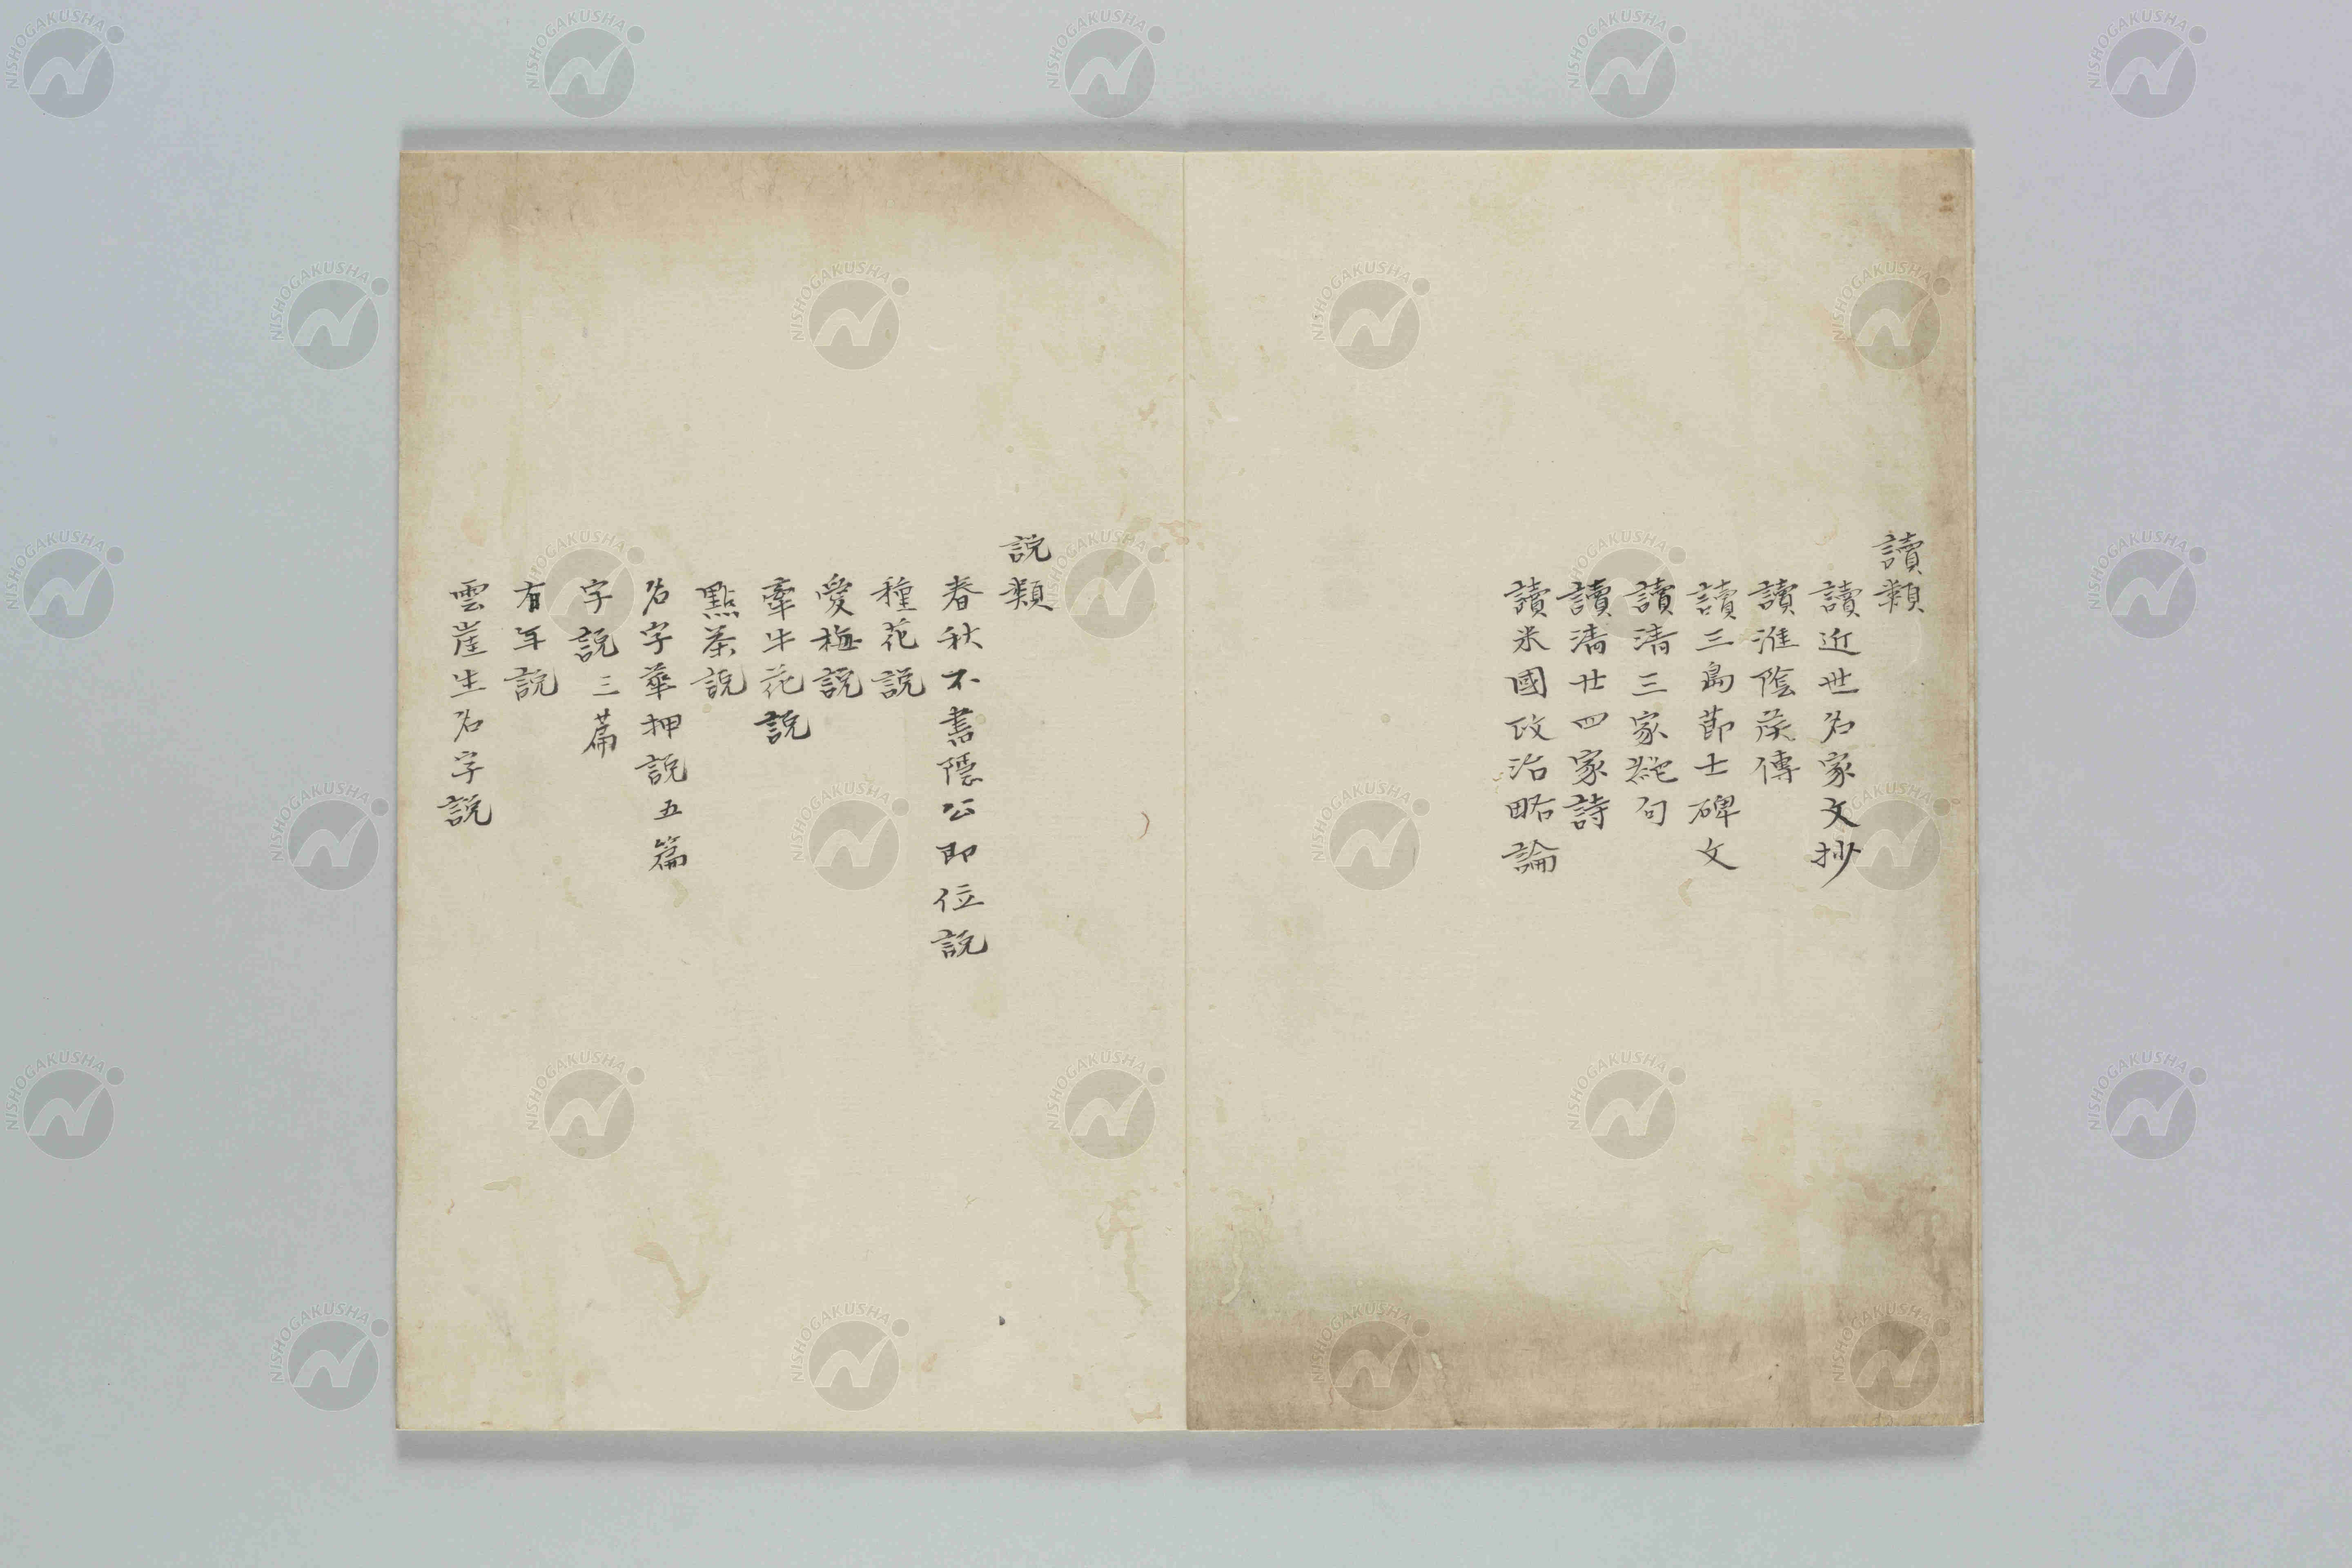 讀類
讀近世名家文抄
讀淮陰侯傳
讀三島節士碑文
讀清三家絕句
讀清廿四家詩
讀米國政治略論
説類
春秋不書隱公即位説
種花説
愛梅説
牽牛花説
點茶説
名字華押説五篇
字説三篇
有年説
雲崖生名字説